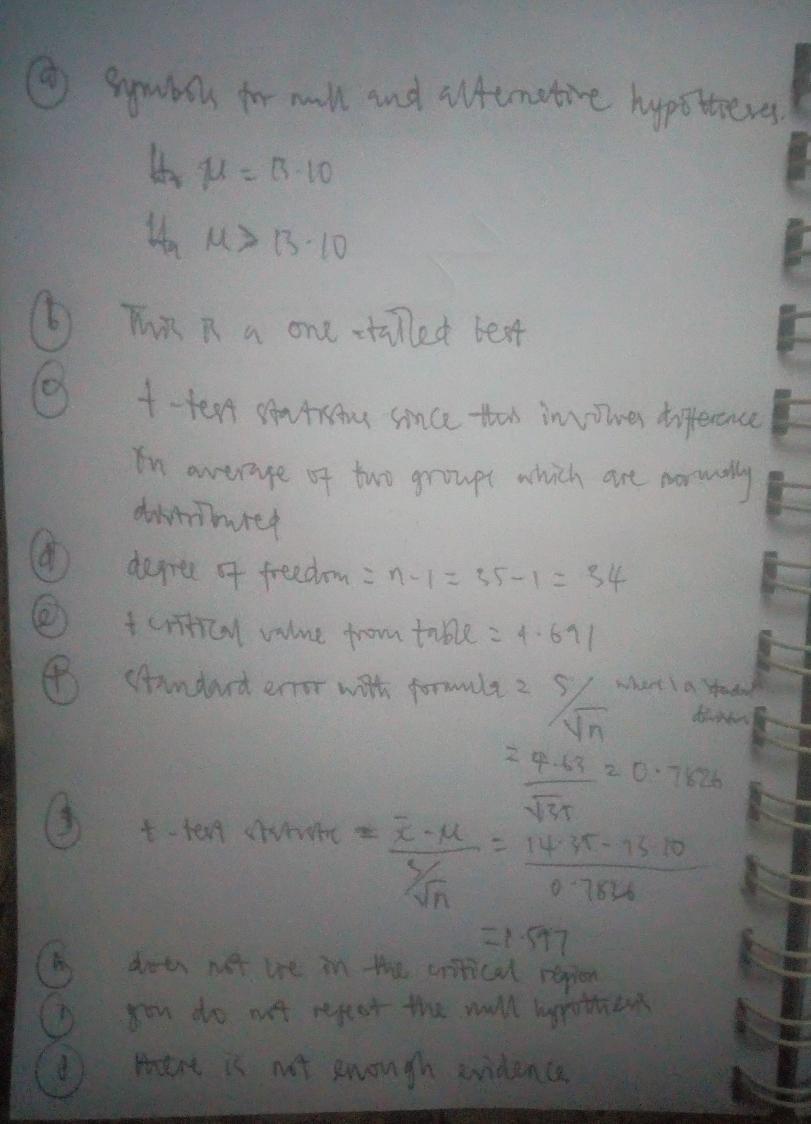 (a) Symbols for null and alternative hypotheses.
H₀ μ = 13.10
Hₐ μ > 13.10
(b) This is a one-tailed test
(c) t-test statistics since this involves difference
in average of two groups which are normally
distributed
(d) degree of freedom = n-1 = 35-1 = 34
(e) t critical value from table = 1.691
(f) standard error with formula = S/√n where
= 4.63/√35 = 0.7826
(g) t-test statistic = x̄-μ / S/√n = 14.35-13.10 / 0.7826
= 1.597
(h) does not lie in the critical region
(i) you do not reject the null hypothesis
(j) there is not enough evidence